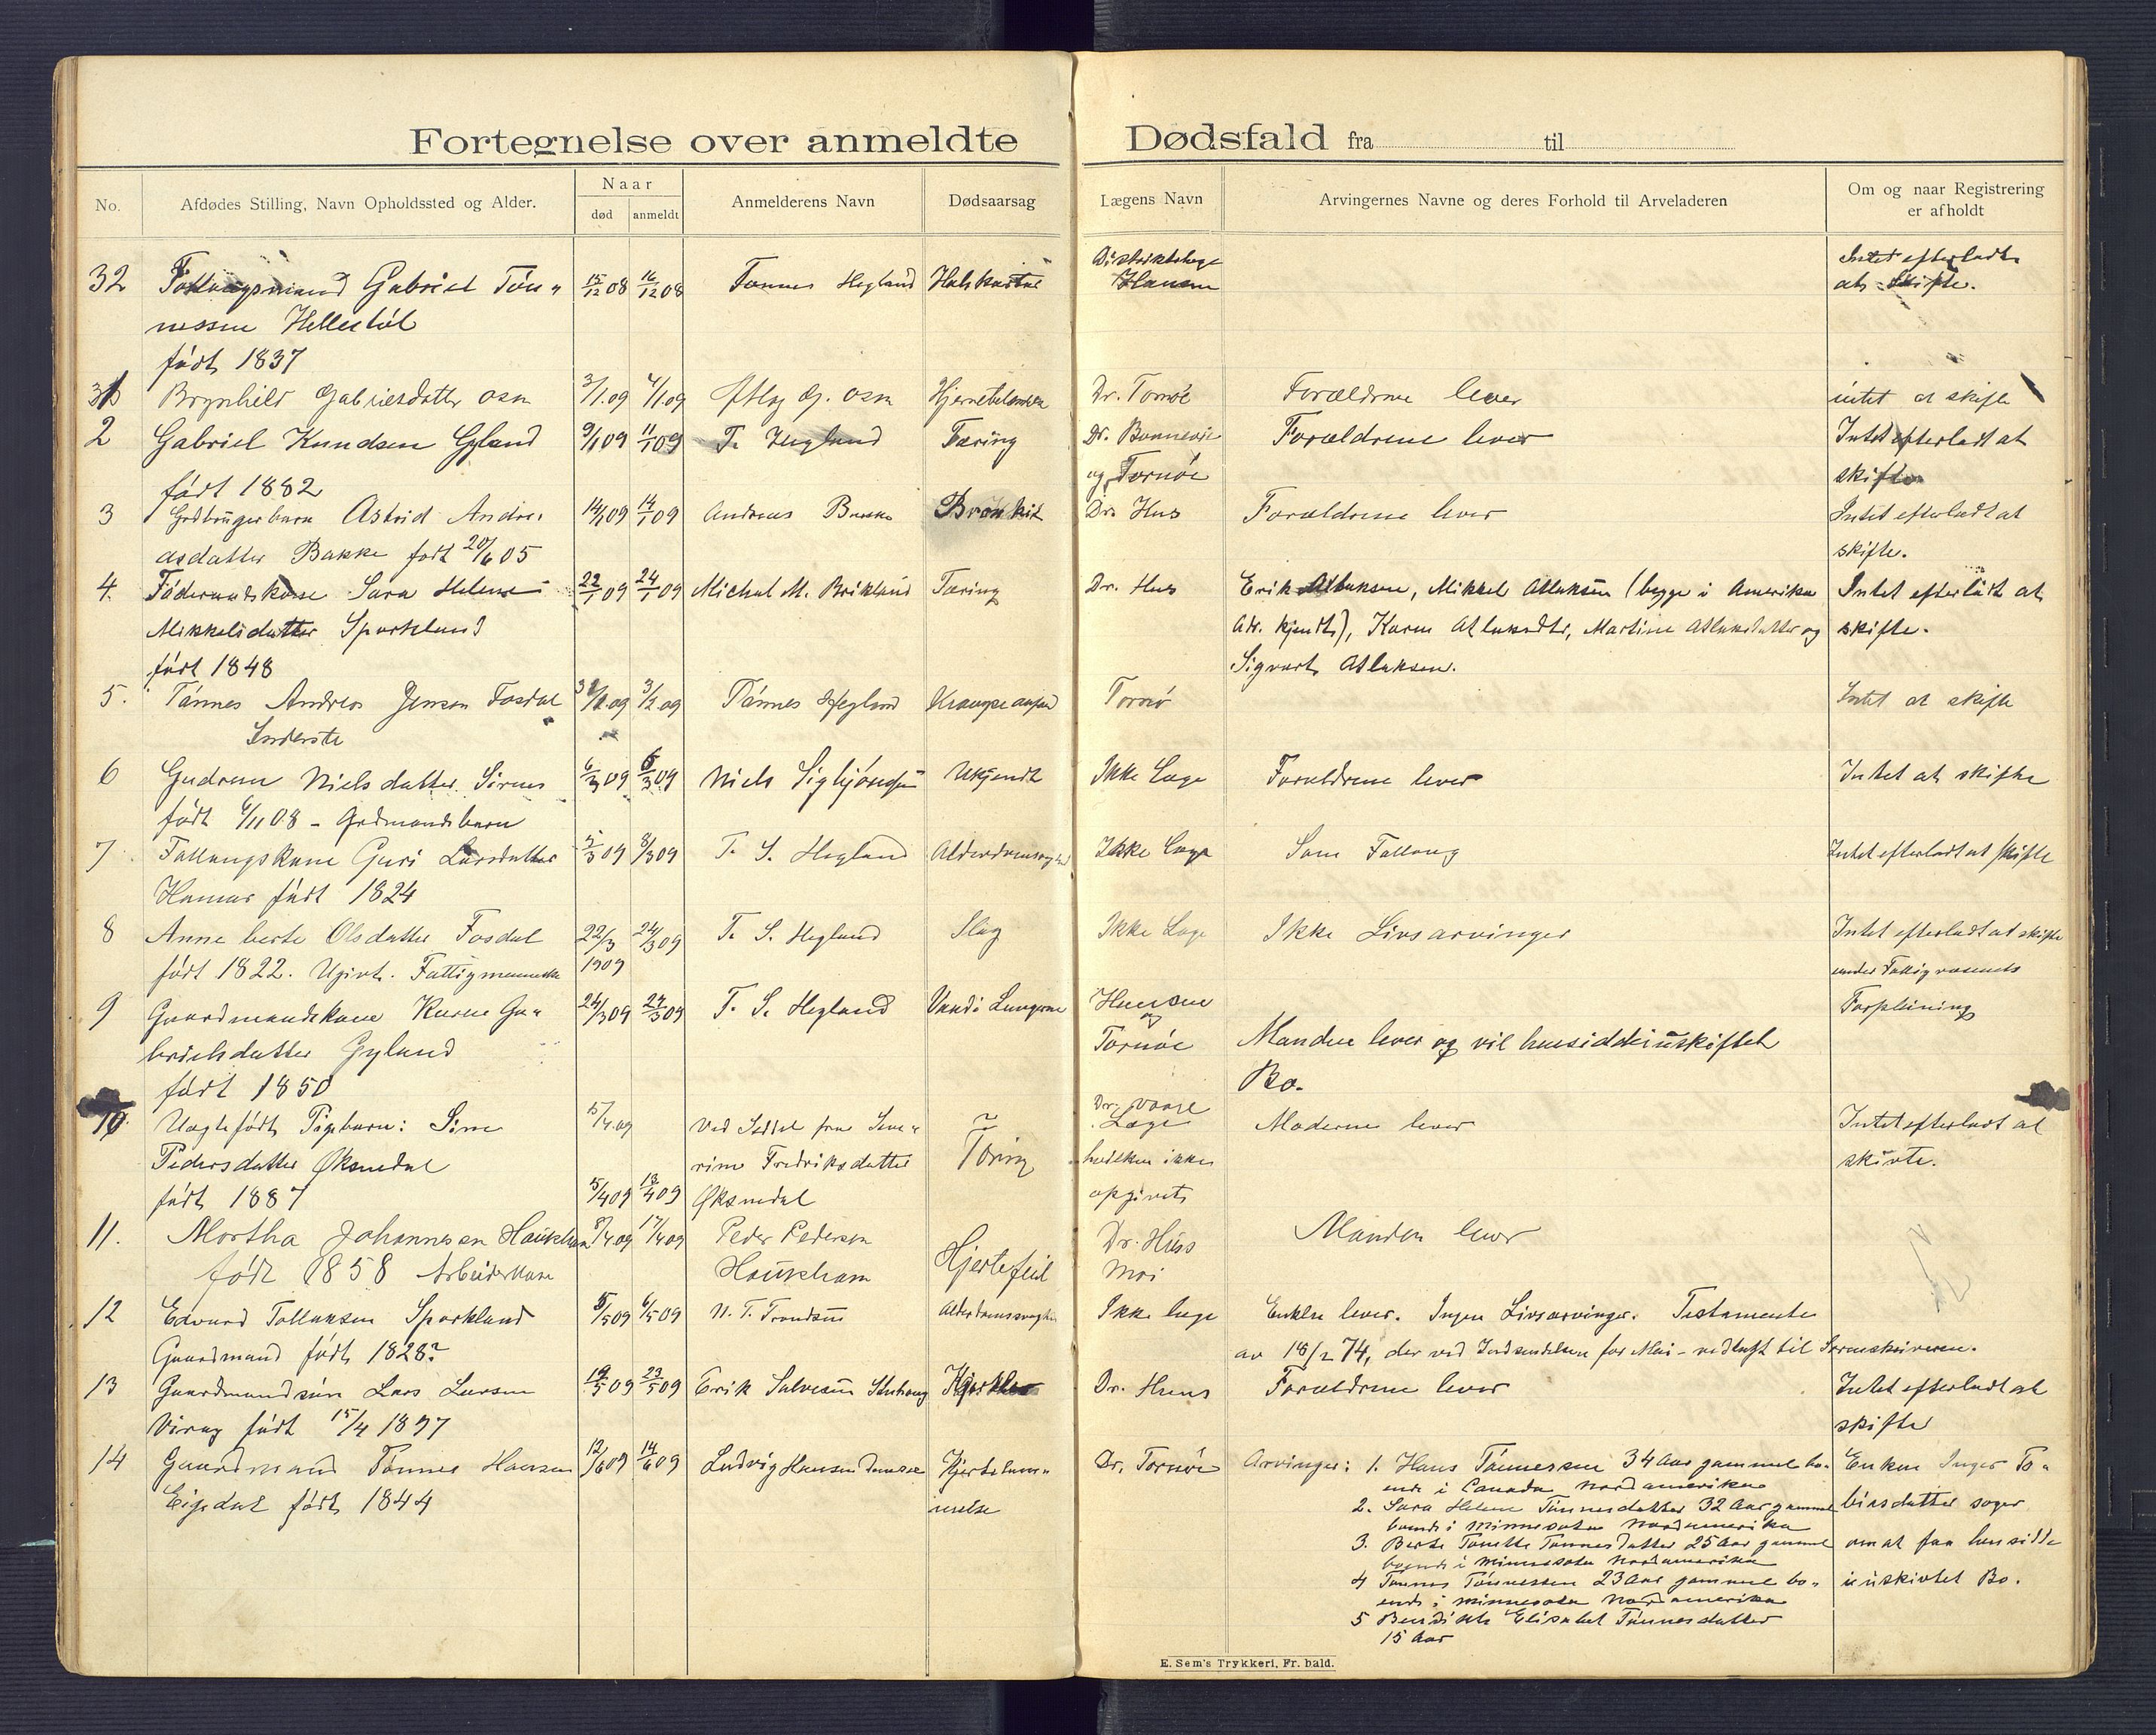 Fortegnelse over anmeldte Dødsfald fra til
No.
Afdødes Stilling, Navn Opholdssted og Alder.
Naar
død
anmeldt
Anmelderens Navn
Dødsaarsag
Lægens Navn
Arvingernes Navne og deres Forhold til Arveladeren
Om og naar Registrering
er afholdt
32 Gabriel Tøn- 15/12 08 16/12 08 Tønnes Hegland
nessen
født 1837
Distriktslæge
Hansen
Intet efterladt
at skifte.
Brynhild Gabrielsdatter Osen 3/1.09 4/1.09 Osen Dr. Tornöe Forældrene lever intet at skifte
2 Gabriel Knudsen Gyland 9/1 09 11/1 09 T. Hegland Tæring Dr. Bonnevie Forældrene lever Intet efterladt at
født 1882 og Tornöe skifte
3 Astrid Andre- 14/1 09 14/1 09 Andreas Bakke Bronkit Dr. Hus Forældrene lever Intet efterladt at
asdatter Bakke født 20/6 05 skifte.
4. Føderaadskone Sara Helene 22/1 09 24/1 09 Michal M. Birkland Tæring Dr. Hus Erik Atlaksen, Mikkel Atlaksen (begge i Amerika Intet efterladt at
Mikkelsdatter Sporkland Adr. kjendt), Karen Atlaksdtr, Martine Atlaksdatter og skifte.
født 1848 Sigvart Atlaksen.
5. Tønnes Andreas Jensen Fosdal 3/2 09 Tønnes Hegland Tornö Intet at skifte
Inderste
6 Gudrun Nielsdatter Sirnes 6/3 09 Niels Sigbjørnsen Ukjendt Ikke Læge Forældrene lever Intet at skifte
født 6/11 08 - Grdmandsbarn
7 Guri Larsdatter 5/3 09 8/3 09 T. S. Hegland Alderdomssvaghed Ikke Læge Intet efterladt at skifte
født 1824
8 Anne Berte Olsdatter Fosdal 22/3 24/3 09 T. S. Hegland Slag Ikke Læge Ikke Livsarvinger Intet efterladt at skifte
født 1822. Ugivt. Fattigmenneske 1909 under Fattigvæsenets
Forpleining
9 Gaardmandskone Karen Ga- 24/3 09 T. S. Hegland Vand i Lungerne Hansen
brielsdatter Gyland og
født 1850 Tornöe Manden lever og vil hensidde i uskiftet
Bo.
10. Uægtefødt Pigebarn: Sine 5/4.09 Ved Seddel fra Seve- Tæring Læge Moderen lever Intet efterladt at
Pedersdatter Øksendal rine Fredriksdatter hvilken ikke skivte.
født 1887 5/4 09 13/4 09 Øksendal opgivet
11. Martha Johannesen Haukham 17/4 09 Peder Pedersen Hjertefeil Dr. Hus Manden lever
født 1858 Arbeiderkone Haukham Moi
12 Edvard Tollaksen Sporkland 5/5 09 6/5 09 N. T. Trondsen Alderdomssvaghed Ikke læge Enken lever. Ingen Livsarvinger. Testamente
Gaardmand født 1828? av 18/2 74, der ved Indsendelsen for Mai - vedlagt til Sorenskriveren.
13 Gaardmandssøn Lars Larsen 19/5 09 23/5 09 Erik Salvesen Dr. Huus Forældrene lever Intet efterladt at
Virag født 15/4 1897 skifte
14 Gaardmand Tønnes Hansen 12/6 09 14/6 09 Ludvig Hansen Hjertelam- Dr. Tornöe Arvinger: 1. Hans Tønnessen 34 Aar gammel bo- Enken Inger To-
Eigedal født 1844 melse ende i Canada Nordamerika
2. Sara Helene Tønnesdatter 32 Aar gammel biasdatter søger
boende i Minnesota Nordamerika
3. Berte Tonette Tønnesdatter 25 Aar gammel om at faa hensidde
boende i Minnesota Nordamerika
4 Tønnes Tønnessen 23 Aar gammel bo- i uskivtet Bo.
ende i Minnesota Nordamerika
5 Elisabet Tønnesdatter
15 Aar
E. Sem's Trykkeri, Fr. hald.